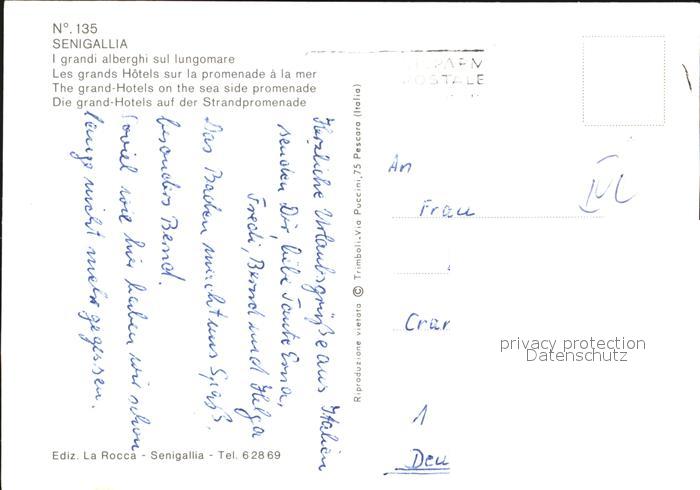 N°. 135
SENIGALLIA
I grandi alberghi sul lungomare
Les grands Hôtels sur la promenade à la mer
The grand-Hotels on the sea side promenade
Die grand-Hotels auf der Strandpromenade
Herzliche Urlaubsgrüße aus Italien
senden Dir, liebe Tante Erna,
Fredi, Bernd und Helga
Das Baden macht uns Spaß,
besonders Bernd.
Soviel wie hier haben wir schon
lange nicht mehr gegessen.
Ediz. La Rocca - Senigallia - Tel. 62869
Riproduzione vietata © Trimboli-Via Puccini,75 Pescara (Italia)
POSTALE
An
Frau
Crar
1
Deu
privacy protection
Datenschutz